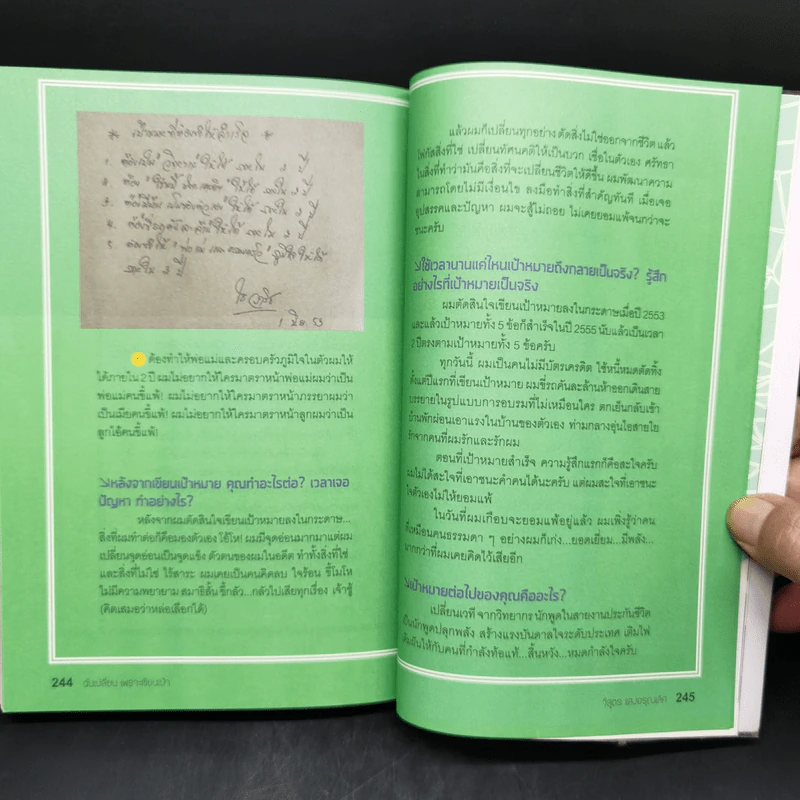 * เป้าหมายที่ต้องทำให้สำเร็จ *
1. ต้องเป็น "วิทยากร" ให้ได้ ภายใน 2 ปี
2. ต้อง "ใช้หนี้ บัตรเครดิต" ให้ได้ ภายใน 2 ปี
3. ต้องมีบ้าน ให้ได้ ภายใน 2 ปี
4. ให้ได้ ภายใน 2 ปี
5. ต้องทำให้ "พ่อ แม่ และ ครอบครัว" ภูมิใจ ให้ได้
ภายใน 2 ปี
1 มิ.ย. 53
ต้องทำให้พ่อแม่และครอบครัวภูมิใจในตัวผมให้
ได้ภายใน 2 ปี ผมไม่อยากให้ใครมาตราหน้าพ่อแม่ผมว่าเป็น
พ่อแม่คนขี้แพ้! ผมไม่อยากให้ใครมาตราหน้าภรรยาผมว่า
เป็นเมียคนขี้แพ้! ผมไม่อยากให้ใครมาตราหน้าลูกผมว่าเป็น
ลูกไอ้คนขี้แพ้!
หลังจากเขียนเป้าหมาย คุณทำอะไรต่อ? เวลาเจอ
ปัญหา ทำอย่างไร?
หลังจากผมตัดสินใจเขียนเป้าหมายลงในกระดาษ...
สิ่งที่ผมทำต่อก็คือมองตัวเอง โอ้โห! ผมมีจุดอ่อนมากมาแต่ผม
เปลี่ยนจุดอ่อนเป็นจุดแข็ง ตัวตนของผมในอดีต ทำทั้งสิ่งที่ใช่
และสิ่งที่ไม่ใช่ ไร้สาระ ผมเคยเป็นคนคิดลบ ใจร้อน ขี้โมโห
ไม่มีความพยายาม สมาธิสั้น ขี้กลัว...กลัวไปเสียทุกเรื่อง เจ้าชู้
(คิดเสมอว่าหล่อเลือกได้)
244 ฉันเปลี่ยน เพราะเขียนเป้า
แล้วผมก็เปลี่ยนทุกอย่าง ตัดสิ่งไม่ใช่ออกจากชีวิต แล้ว
โฟกัสสิ่งที่ใช่ เปลี่ยนทัศนคติให้เป็นบวก เชื่อในตัวเอง ศรัทธา
ในสิ่งที่ทำว่ามันคือสิ่งที่จะเปลี่ยนชีวิตให้ดีขึ้น ผมพัฒนาความ
สามารถโดยไม่มีเงื่อนไข ลงมือทำสิ่งที่สำคัญทันที เมื่อเจอ
อุปสรรคและปัญหา ผมจะสู้ไม่ถอย ไม่เคยยอมแพ้จนกว่าจะ
ชนะครับ
ใช้เวลานานแค่ไหนเป้าหมายถึงกลายเป็นจริง? รู้สึก
อย่างไรที่เป้าหมายเป็นจริง
ผมตัดสินใจเขียนเป้าหมายลงในกระดาษเมื่อปี 2553
และแล้วเป้าหมายทั้ง 5 ข้อก็สำเร็จในปี 2555 นับแล้วเป็นเวลา
2 ปีตรงตามเป้าหมายทั้ง 5 ข้อครับ
ทุกวันนี้ ผมเป็นคนไม่มีบัตรเครดิต ใช้หนี้หมดตัดทิ้ง
ตั้งแต่ปีแรกที่เขียนเป้าหมาย ผมขี่รถคันละล้านห้าออกเดินสาย
บรรยายในรูปแบบการอบรมที่ไม่เหมือนใคร ตกเย็นกลับเข้า
บ้านพักผ่อนเอาแรงในบ้านของตัวเอง ท่ามกลางอุ่นไอสายใย
รักจากคนที่ผมรักและรักผม
ตอนที่เป้าหมายสำเร็จ ความรู้สึกแรกก็คือสะใจครับ
ผมไม่ได้สะใจที่เอาชนะคำคนได้นะครับ แต่ผมสะใจที่เอาชนะ
ใจตัวเองไม่ให้ยอมแพ้
ในวันที่ผมเกือบจะยอมแพ้อยู่แล้ว ผมเพิ่งรู้ว่าคน
ที่เหมือนคนธรรมดา ๆ อย่างผมก็เก่ง...ยอดเยี่ยม...มีพลัง...
มากกว่าที่ผมเคยคิดไว้เสียอีก
เป้าหมายต่อไปของคุณคืออะไร?
เปลี่ยนเวที จากวิทยากร นักพูดในสายงานประกันชีวิต
เป็นนักพูดปลุกพลัง สร้างแรงบันดาลใจระดับประเทศ เติมไฟ
เติมฝันให้กับคนที่กำลังท้อแท้...สิ้นหวัง...หมดกำลังใจครับ
วิสูตร แสงอรุณเลิศ 245